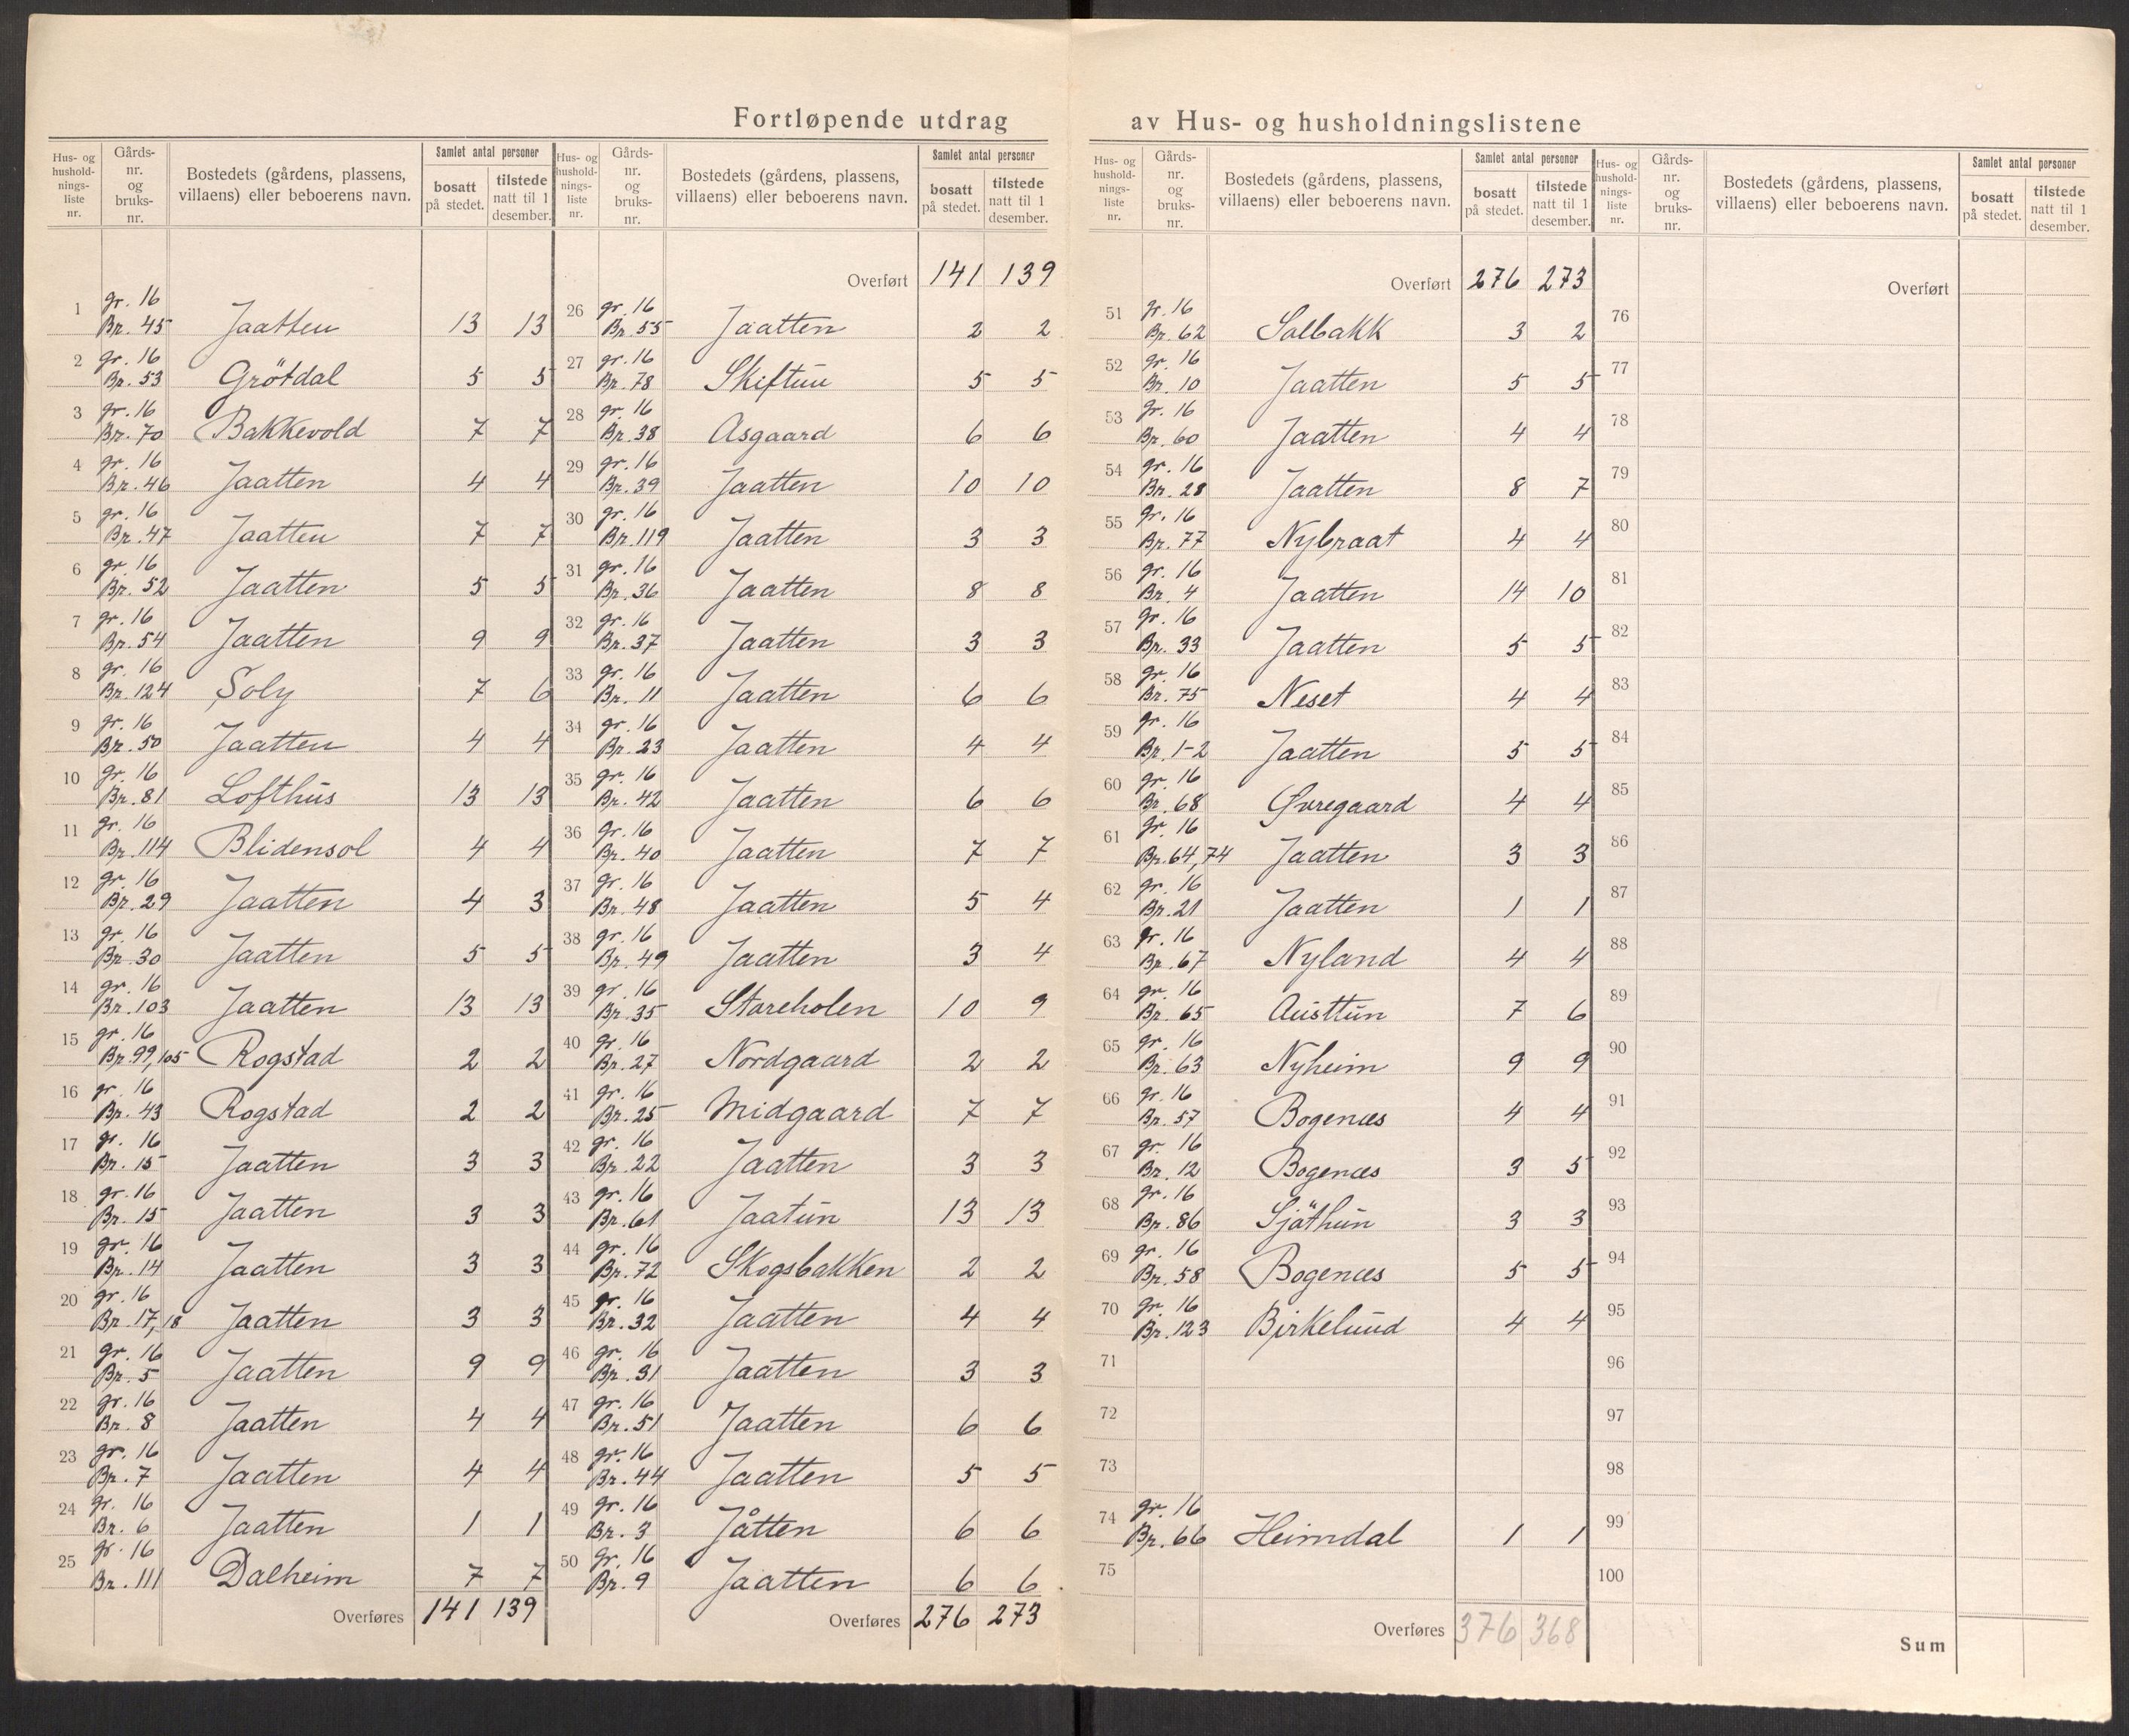 Fortløpende utdrag av Hus- og husholdningslistene
Hus- og husholdningsliste nr. | Gårdsnr. og bruksnr. | Bostedets (gårdens, plassens, villaens) eller beboerens navn. | Samlet antal personer | bosatt på stedet. | tilstede natt til 1 desember.
1 gr. 16 Br. 45 Jaatten 13 13
2 gr. 16 Br. 53 Grötdal 5 5
3 gr. 16 Br. 70 Bakkevold 7 7
4 gr. 16 Br. 46 Jaatten 4 4
5 gr. 16 Br. 47 Jaatten 7 7
6 gr. 16 Br. 52 Jaatten 5 5
7 gr. 16 Br. 54 Jaatten 9 9
8 gr. 16 Br. 124 Soly 7 6
9 gr. 16 Br. 50 Jaatten 4 4
10 gr. 16 Br. 81 Lofthus 13 13
11 gr. 16 Br. 114 Blidensol 4 4
12 gr. 16 Br. 29 Jaatten 4 3
13 gr. 16 Br. 30 Jaatten 5 5
14 gr. 16 Br. 103 Jaatten 13 13
15 gr. 16 Br. 99, 105 Rogstad 2 2
16 gr. 16 Br. 43 Rogstad 2 2
17 gr. 16 Br. 15 Jaatten 3 3
18 gr. 16 Br. 15 Jaatten 3 3
19 gr. 16 Br. 14 Jaatten 3 3
20 gr. 16 Br. 17, 18 Jaatten 3 3
21 gr. 16 Br. 5 Jaatten 9 9
22 gr. 16 Br. 8 Jaatten 4 4
23 gr. 16 Br. 7 Jaatten 4 4
24 gr. 16 Br. 6 Jaatten 1 1
25 gr. 16 Br. 111 Dalheim 7 7
Overføres 141 139
Hus- og husholdningsliste nr. | Gårdsnr. og bruksnr. | Bostedets (gårdens, plassens, villaens) eller beboerens navn. | Samlet antal personer | bosatt på stedet. | tilstede natt til 1 desember.
Overført 141 139
26 gr. 16 Br. 55 Jaatten 2 2
27 gr. 16 Br. 78 Skiftun 5 5
28 gr. 16 Br. 38 Asgaard 6 6
29 gr. 16 Br. 39 Jaatten 10 10
30 gr. 16 Br. 119 Jaatten 3 3
31 gr. 16 Br. 36 Jaatten 8 8
32 gr. 16 Br. 37 Jaatten 3 3
33 gr. 16 Br. 11 Jaatten 6 6
34 gr. 16 Br. 23 Jaatten 4 4
35 gr. 16 Br. 42 Jaatten 6 6
36 gr. 16 Br. 40 Jaatten 7 7
37 gr. 16 Br. 48 Jaatten 5 4
38 gr. 16 Br. 49 Jaatten 3 4
39 gr. 16 Br. 35 Stareholen 10 9
40 gr. 16 Br. 27 Nordgaard 2 2
41 gr. 16 Br. 25 Midgaard 7 7
42 gr. 16 Br. 22 Jaatten 3 3
43 gr. 16 Br. 61 Jaatun 13 13
44 gr. 16 Br. 72 Skogsbakken 2 2
45 gr. 16 Br. 32 Jaatten 4 4
46 gr. 16 Br. 31 Jaatten 3 3
47 gr. 16 Br. 51 Jaatten 6 6
48 gr. 16 Br. 44 Jaatten 5 5
49 gr. 16 Br. 3 Jåtten 6 6
50 gr. 16 Br. 9 Jaatten 6 6
Overføres 276 273
Hus- og husholdningsliste nr. | Gårdsnr. og bruksnr. | Bostedets (gårdens, plassens, villaens) eller beboerens navn. | Samlet antal personer | bosatt på stedet. | tilstede natt til 1 desember.
Overført 276 273
51 gr. 16 Br. 62 Solbakk 3 2
52 gr. 16 Br. 10 Jaatten 5 5
53 gr. 16 Br. 60 Jaatten 4 4
54 gr. 16 Br. 28 Jaatten 8 7
55 gr. 16 Br. 77 Nybraat 4 4
56 gr. 16 Br. 4 Jaatten 14 10
57 gr. 16 Br. 33 Jaatten 5 5
58 gr. 16 Br. 75 Neset 4 4
59 gr. 16 Br. 1-2 Jaatten 5 5
60 gr. 16 Br. 68 Øvregaard 4 4
61 gr. 16 Br. 64, 74 Jaatten 3 3
62 gr. 16 Br. 21 Jaatten 1 1
63 gr. 16 Br. 67 Nyland 4 4
64 gr. 16 Br. 65 Austtun 7 6
65 gr. 16 Br. 63 Nyheim 9 9
66 gr. 16 Br. 57 Bogenæs 4 4
67 gr. 16 Br. 12 Bogenæs 3 5
68 gr. 16 Br. 86 Sjöthun 3 3
69 gr. 16 Br. 58 Bogenæs 5 5
70 gr. 16 Br. 123 Birkelund 4 4
71
72
73
74 gr. 16 Br. 66 Heimdal 1 1
75
Overføres 376 368
Hus- og husholdningsliste nr. | Gårdsnr. og bruksnr. | Bostedets (gårdens, plassens, villaens) eller beboerens navn. | Samlet antal personer | bosatt på stedet. | tilstede natt til 1 desember.
Overført
76
77
78
79
80
81
82
83
84
85
86
87
88
89
90
91
92
93
94
95
96
97
98
99
100
Sum